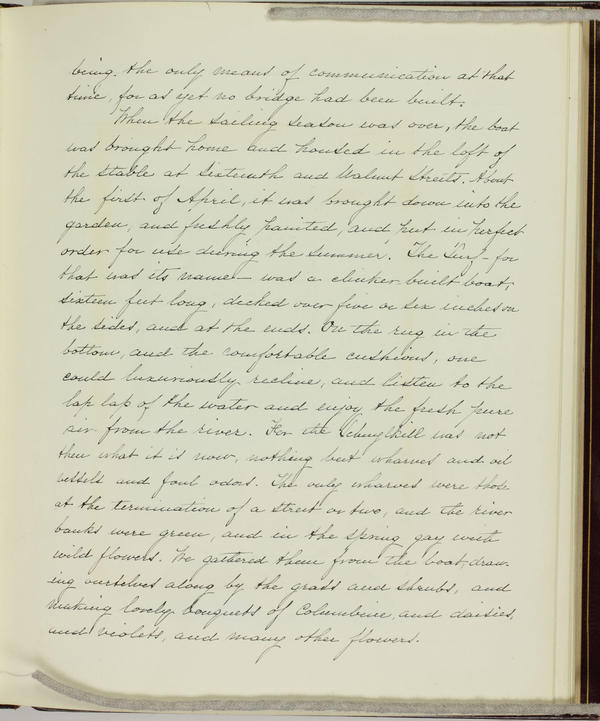 being. the only means of communication at that
time, for as yet no bridge had been built.
When the sailing season was over, the boat
was brought home and housed in the loft of
the stable at Sixteenth and Walnut Streets. About
the first of April, it was brought down into the
garden, and freshly painted, and put in perfect
order for use during the summer. The Surf - for
that was its name - was a clinker-built boat,
sixteen feet long, decked over five or six inches on
the sides, and at the ends. On the rug in the
bottom, and the comfortable cushions, one
could luxuriously recline, and listen to the
lap lap of the water and enjoy the fresh pure
air from the river. For the Schuylkill was not
then what it is now, nothing but wharves and oil
vessels and foul odors. The only wharves were those
at the termination of a street or two, and the river
banks were green, and in the spring gay with
wild flowers. We gathered them from the boat, draw-
ing ourselves along by the grass and shrubs, and
making lovely bouquets of Columbine, and daisies,
and violets, and many other flowers.